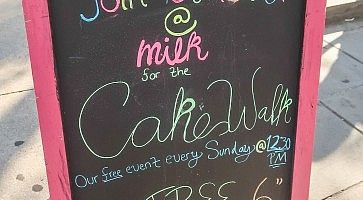 Join
@
milk
for the
Cake Walk
Our free event every Sunday @ 12:30
PM
FREE 6"